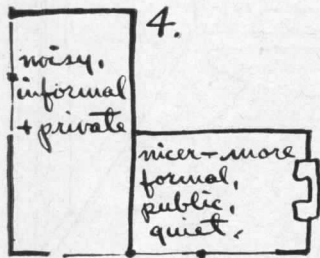 4.
noisy,
informal
+ private
nicer - more
formal,
public,
quiet.